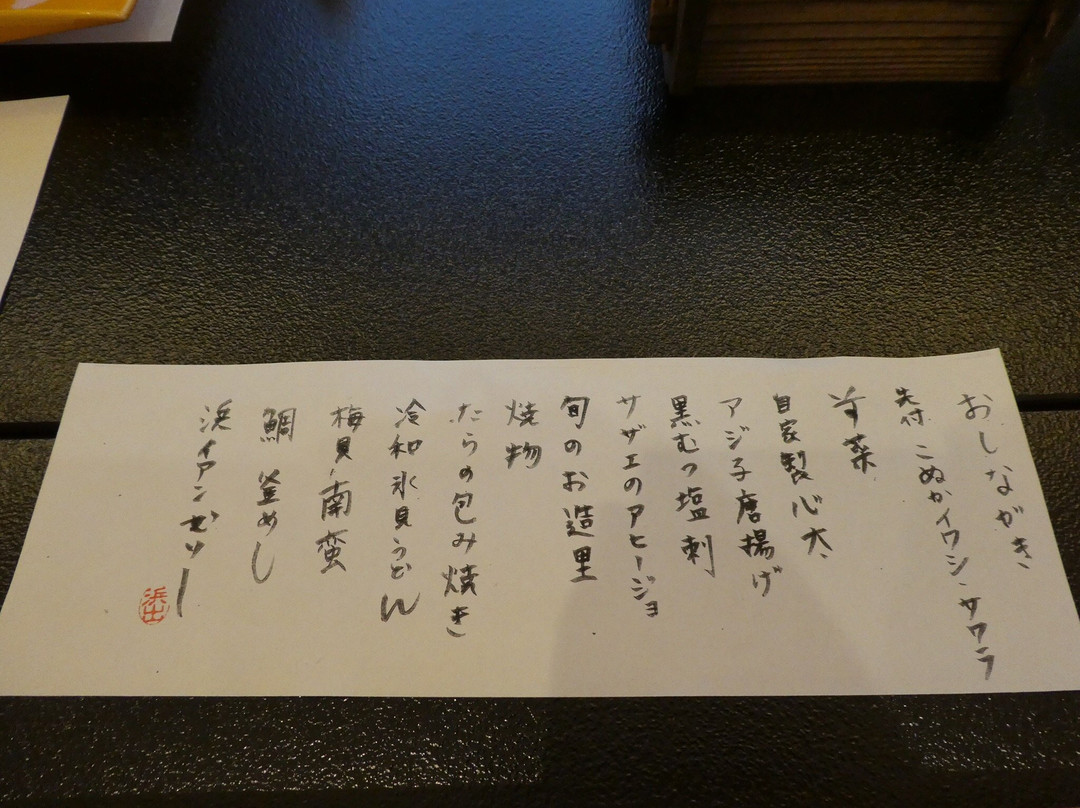 おしながき
先付 こぬかイワシ・サワラ
前菜
自家製心太
アジ子唐揚げ
黒むつ塩刺
サザエのアヒージョ
旬のお造里
焼物
たらの包み焼き
冷和氷見うどん
梅貝南蛮
鯛 釜めし
浜イアンゼリー
浜出